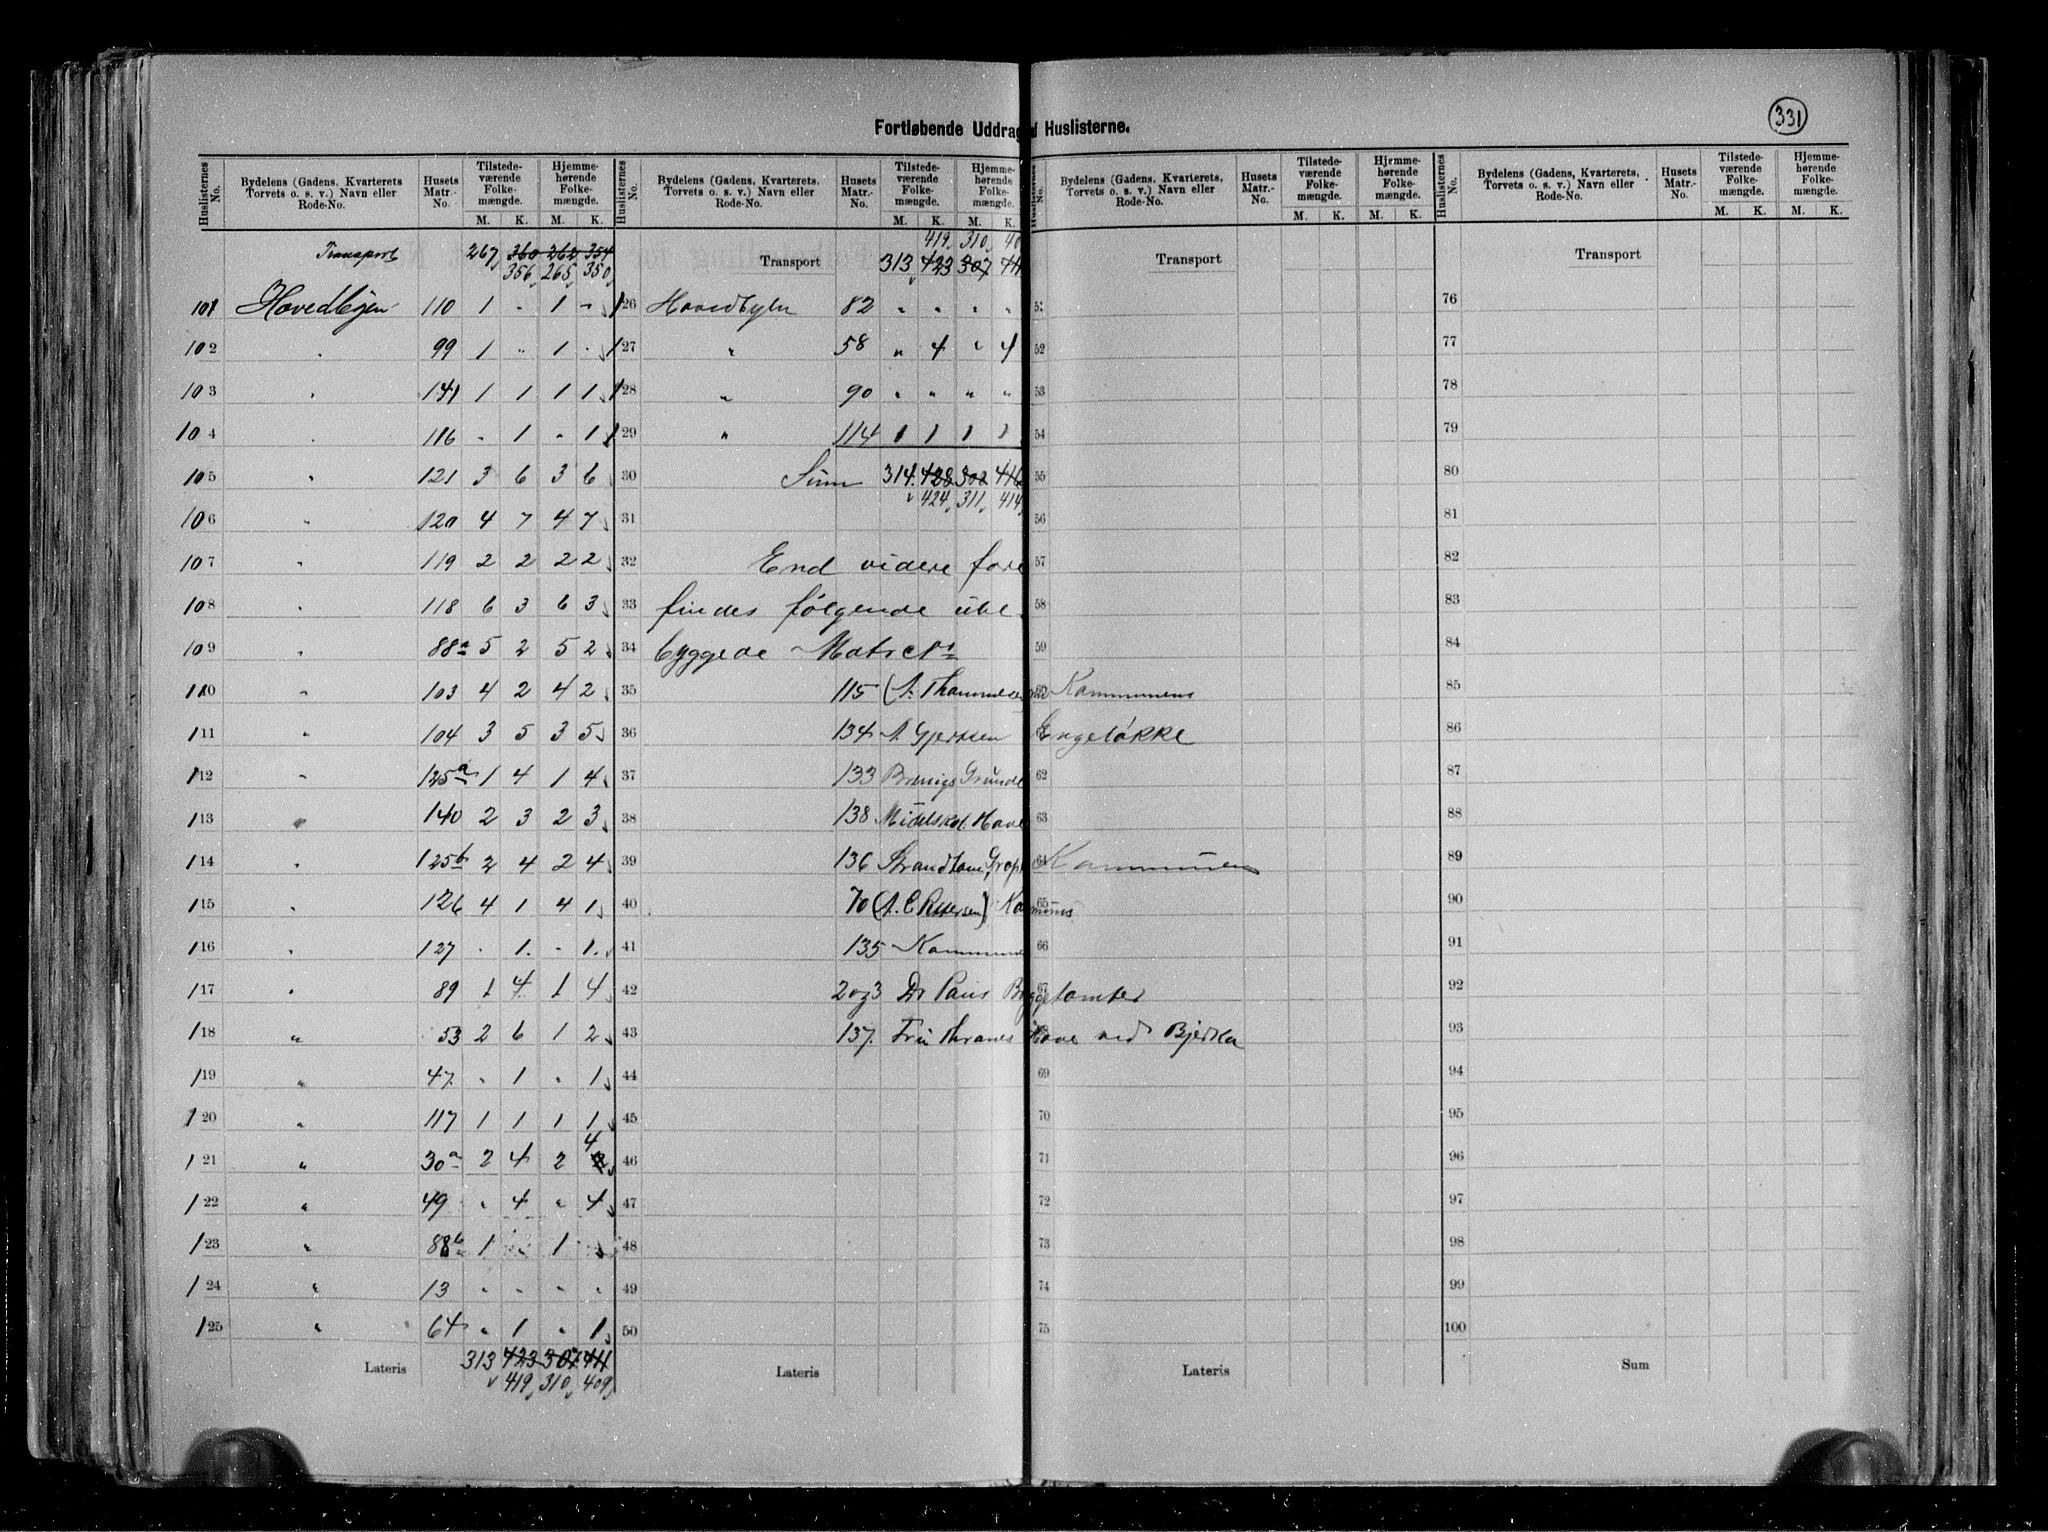 331
Fortløbende Uddrag af Huslisterne.
Huslisternes No. Bydelens (Gadens, Kvarterets, Torvets o. s. v.) Navn eller Rode-No. Husets Matr.-No. Tilstede-værende Folke-mængde. M. K. Hjemme-hørende Folke-mængde. M. K.
Transport 267 360 262 354
356 265 350
101 Hovedbyen 110 1 - 1 -
102 " 99 1 " 1 -
103 " 141 1 1 1 1
104 " 116 - 1 - 1
105 " 121 3 6 3 6
106 " 120 4 7 4 7
107 " 119 2 2 2 2
108 " 118 6 3 6 3
109 " 88a 5 2 5 2
110 " 103 4 2 4 2
111 " 104 3 5 3 5
112 " 125a 1 4 1 4
113 " 140 2 3 2 3
114 " 125b 2 4 2 4
115 " 126 4 1 4 1
116 " 127 - 1 - 1
117 " 89 1 4 1 4
118 " 53 2 6 1 2
119 " 47 - 1 - 1
120 " 117 1 1 1 1
121 " 30a 2 4 2 4
122 " 49 " 4 " 4
123 " 88b 1 - 1 -
124 " 13 - - - -
125 " 64 " 1 " 1
Lateris 313 423 307 411
419 310 409
Huslisternes No. Bydelens (Gadens, Kvarterets, Torvets o. s. v.) Navn eller Rode-No. Husets Matr.-No. Tilstede-værende Folke-mængde. M. K. Hjemme-hørende Folke-mængde. M. K.
419 310 40
Transport 313 423 307 411
126 Hovedbyen 82 " " " "
127 " 58 " 4 " 4
128 " 90 " " " "
129 " 114 1 1 1 1
30 Sum 314 428 302 416
424 311 414
31
32 End videre fore
33 findes følgende ube
34 byggede Matr No
35 115 (A. Thommesen Kommunens
36 134 A. Gjertsen Engeløkke
37 133 Grunde
38 138 Middelskol. Have
39 136 Kommunen
40 70 (A. C. Pettersen) Kommunes
41 135 Kommune
42 2 og 3 Dr Paus Byggetomter
43 137. Fru Thranes Have ved
44
45
46
47
48
49
50
Lateris
Huslisternes No. Bydelens (Gadens, Kvarterets, Torvets o. s. v.) Navn eller Rode-No. Husets Matr.-No. Tilstede-værende Folke-mængde. M. K. Hjemme-hørende Folke-mængde. M. K.
Transport
51
52
53
54
55
56
57
58
59
60
62
63
64
65
66
67
69
70
71
72
73
74
75
Lateris
Huslisternes No. Bydelens (Gadens, Kvarterets, Torvets o. s. v.) Navn eller Rode-No. Husets Matr.-No. Tilstede-værende Folke-mængde. M. K. Hjemme-hørende Folke-mængde. M. K.
Transport
76
77
78
79
80
81
82
83
84
85
86
87
88
89
90
91
92
93
94
95
96
97
98
99
100
Sum